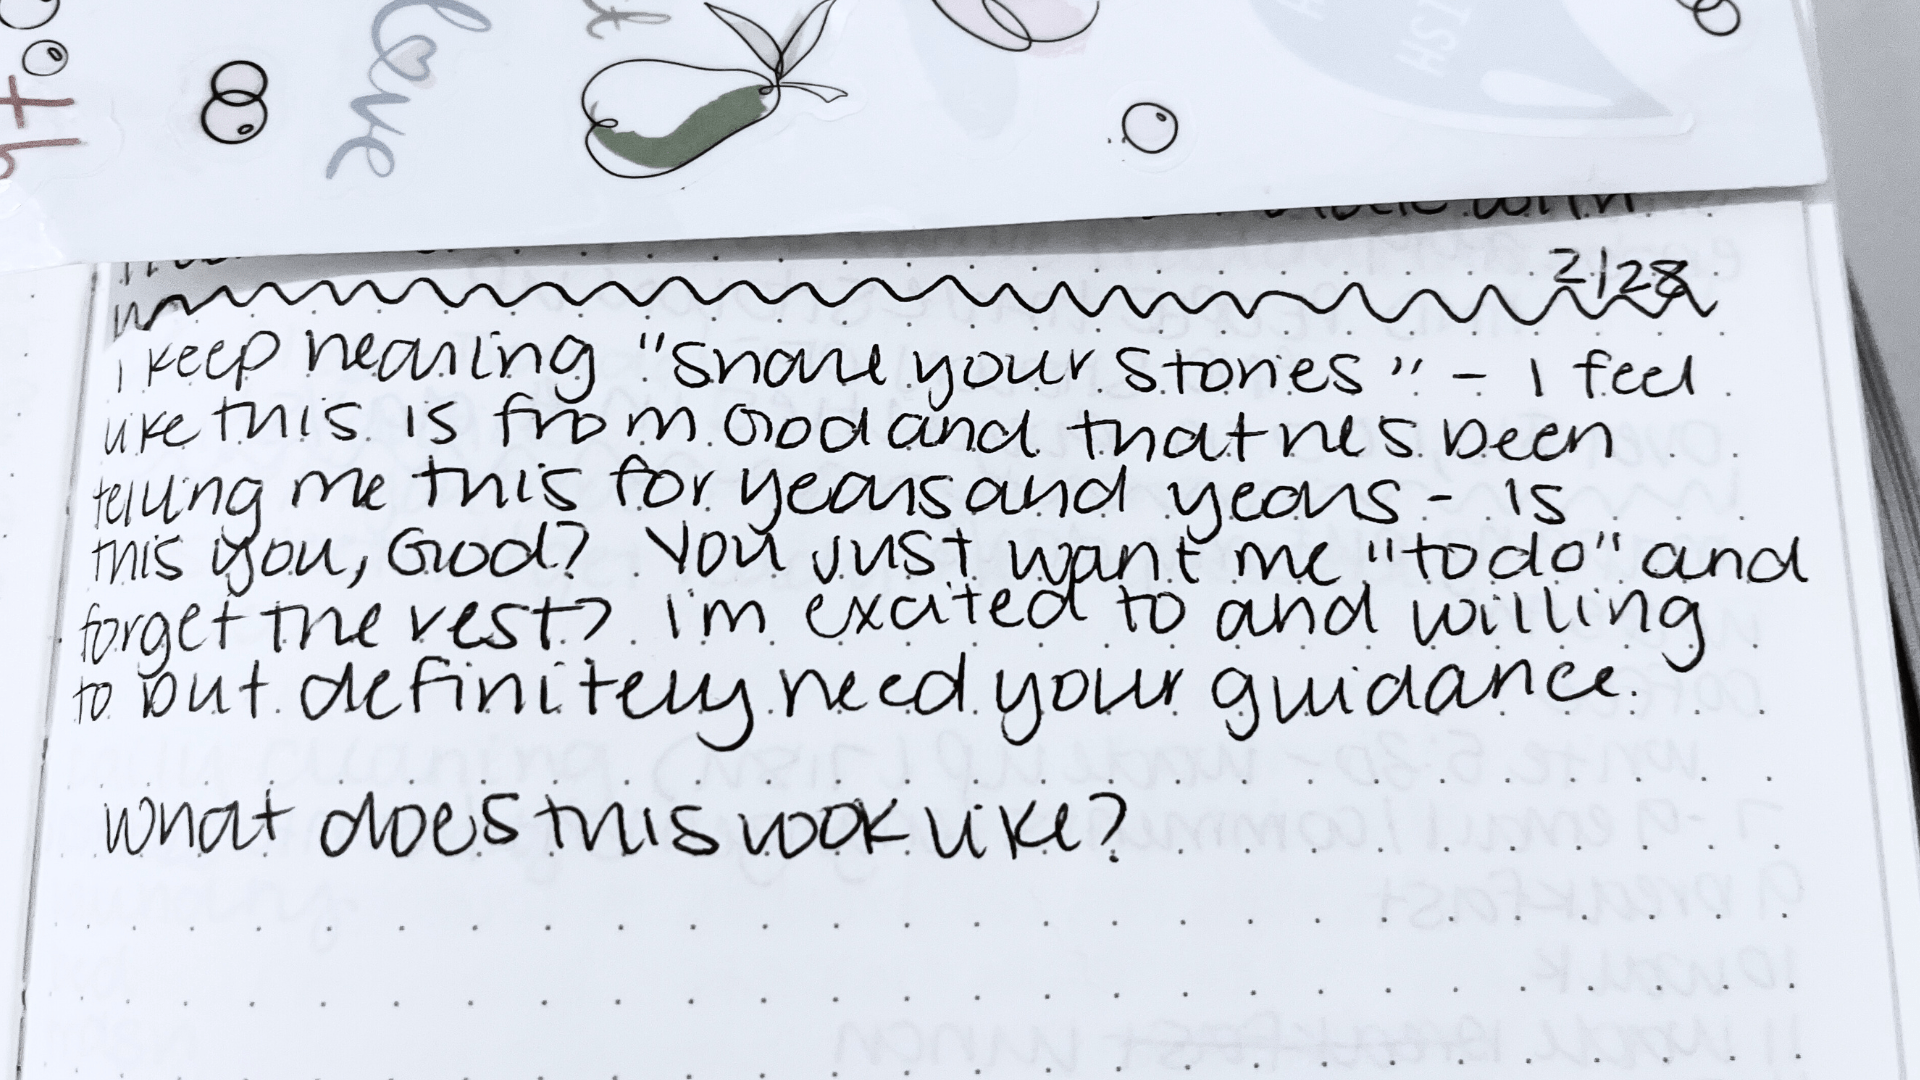 love
2/28
I keep hearing "Share your stories" - I feel
like this is from God and that he's been
telling me this for years and years - is
this you, God? You just want me "to do" and
forget the rest? I'm excited to and willing
to but definitely need your guidance.
What does this look like?